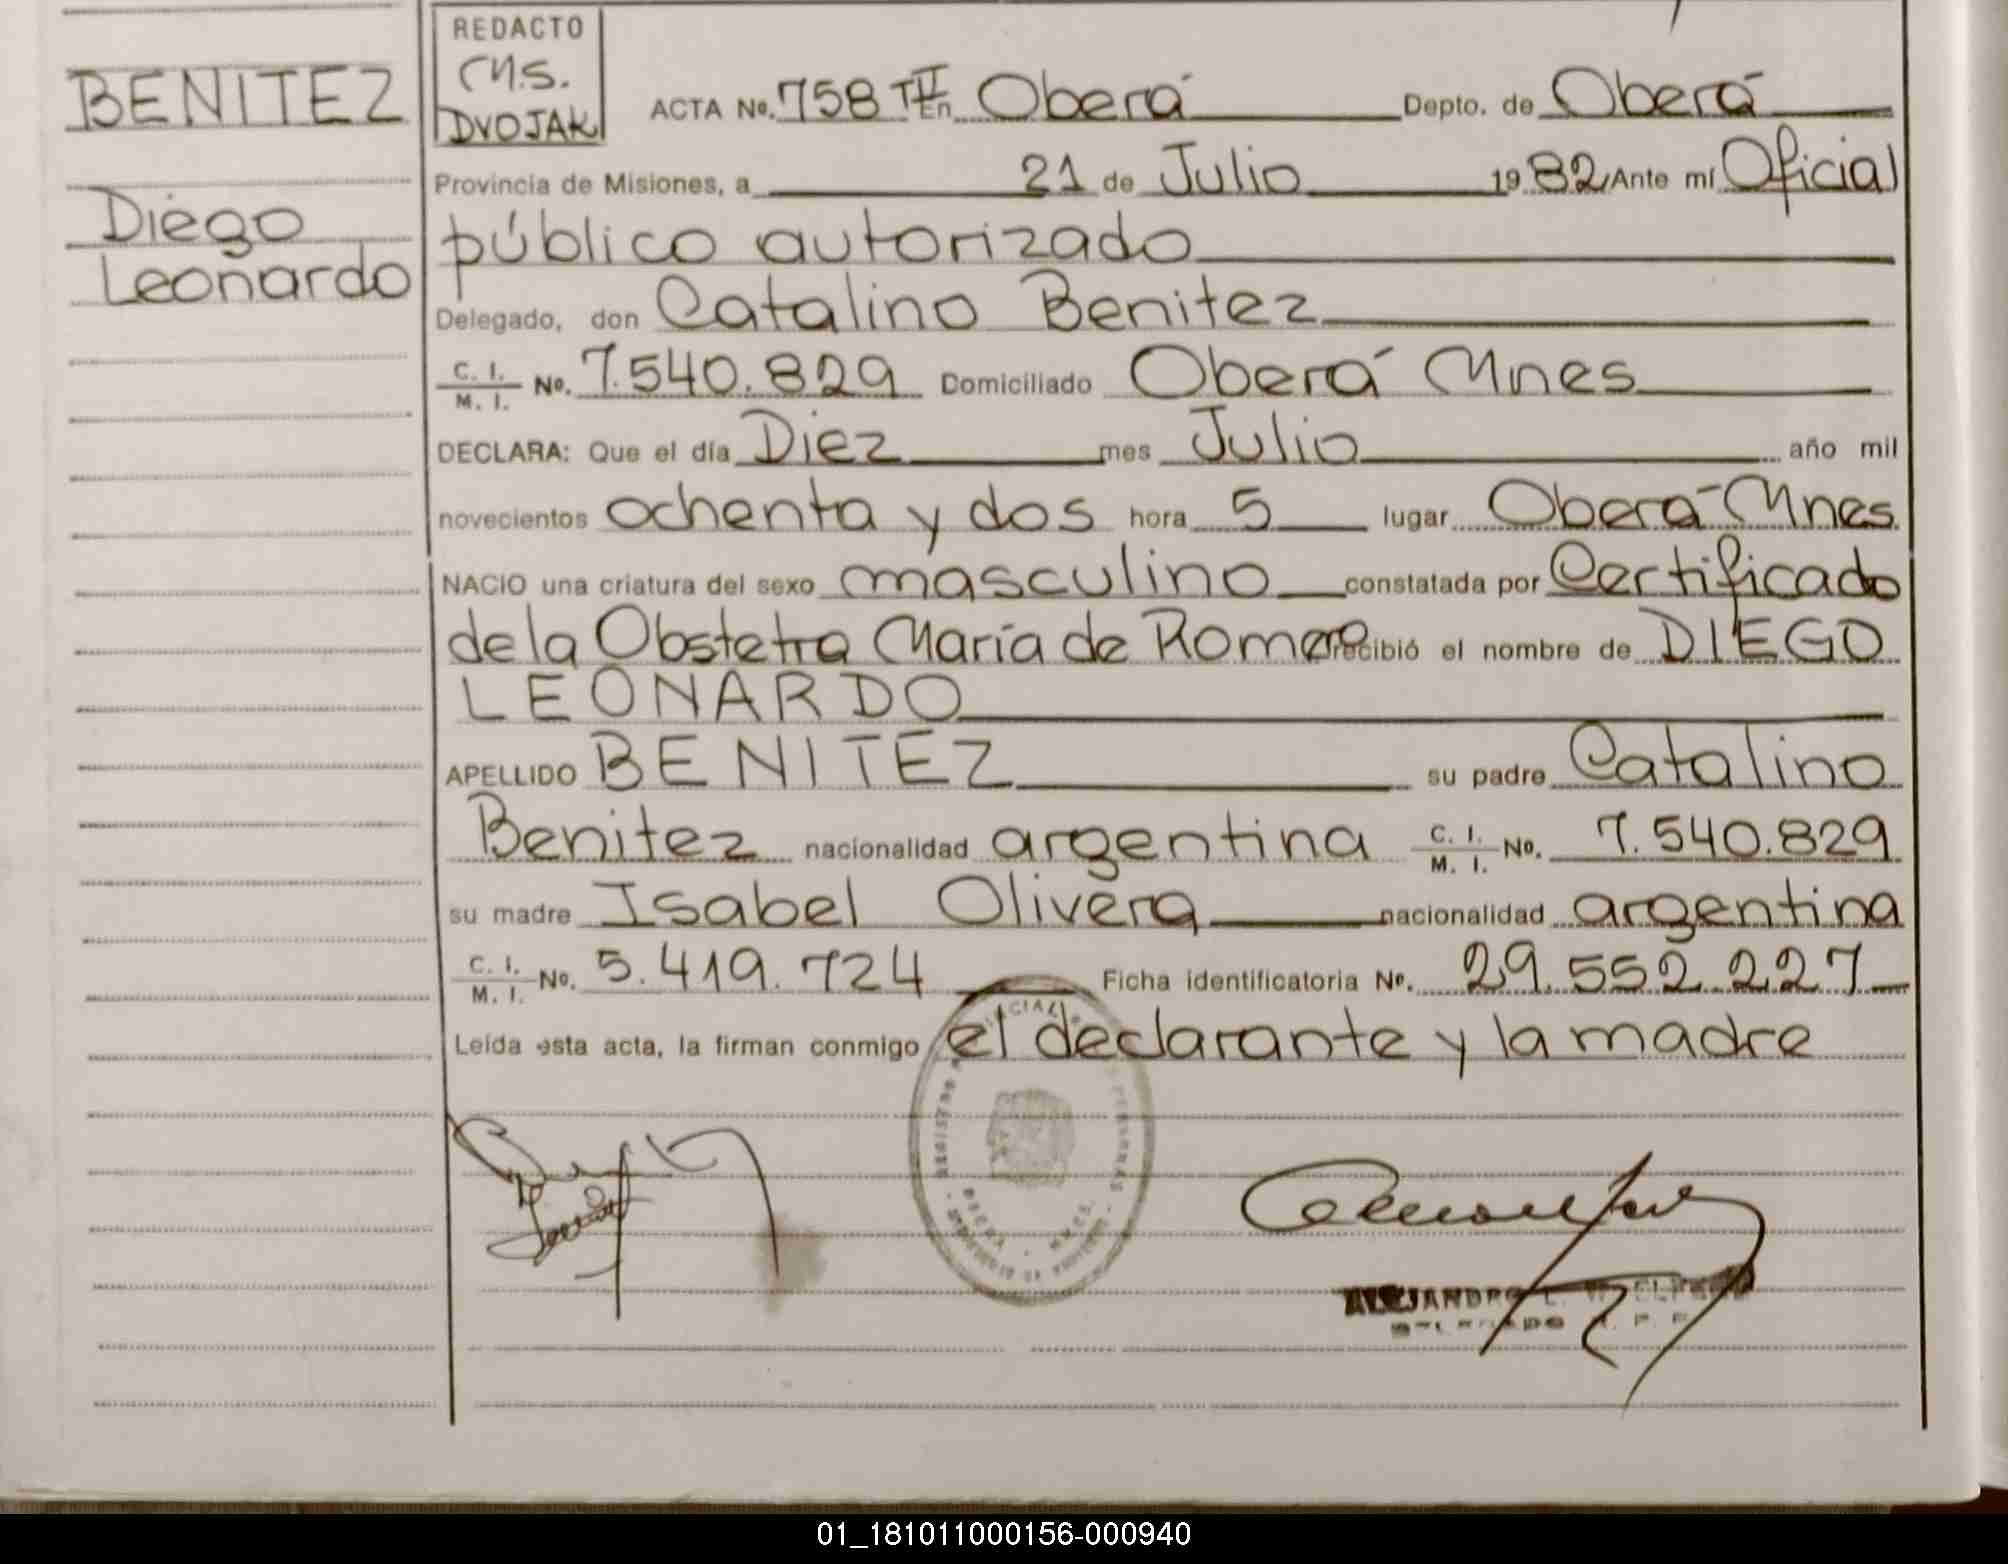 BENITEZ
Diego
Leonardo
REDACTO
M.S.
DVOJAK
ACTA No. 758 TII En Oberá Depto. de Oberá
Provincia de Misiones, a 21 de Julio 1982 Ante mí Oficial
público autorizado
Delegado, don Catalino Benitez
C. I. / M. I. No. 7.540.829 Domiciliado Oberá Mnes
DECLARA: Que el día Diez mes Julio año mil
novecientos ochenta y dos hora 5 lugar Oberá-Mnes
NACIO una criatura del sexo masculino constatada por Certificado
de la Obstetra María de Romero recibió el nombre de DIEGO
LEONARDO
APELLIDO BENITEZ su padre Catalino
Benitez nacionalidad argentina C. I. / M. I. No. 7.540.829
su madre Isabel Olivera nacionalidad argentina
C. I. / M. I. No. 5.419.724 Ficha identificatoria No. 29.552.227
Leída esta acta, la firman conmigo el declarante y la madre
ALEJANDRO
01_181011000156-000940